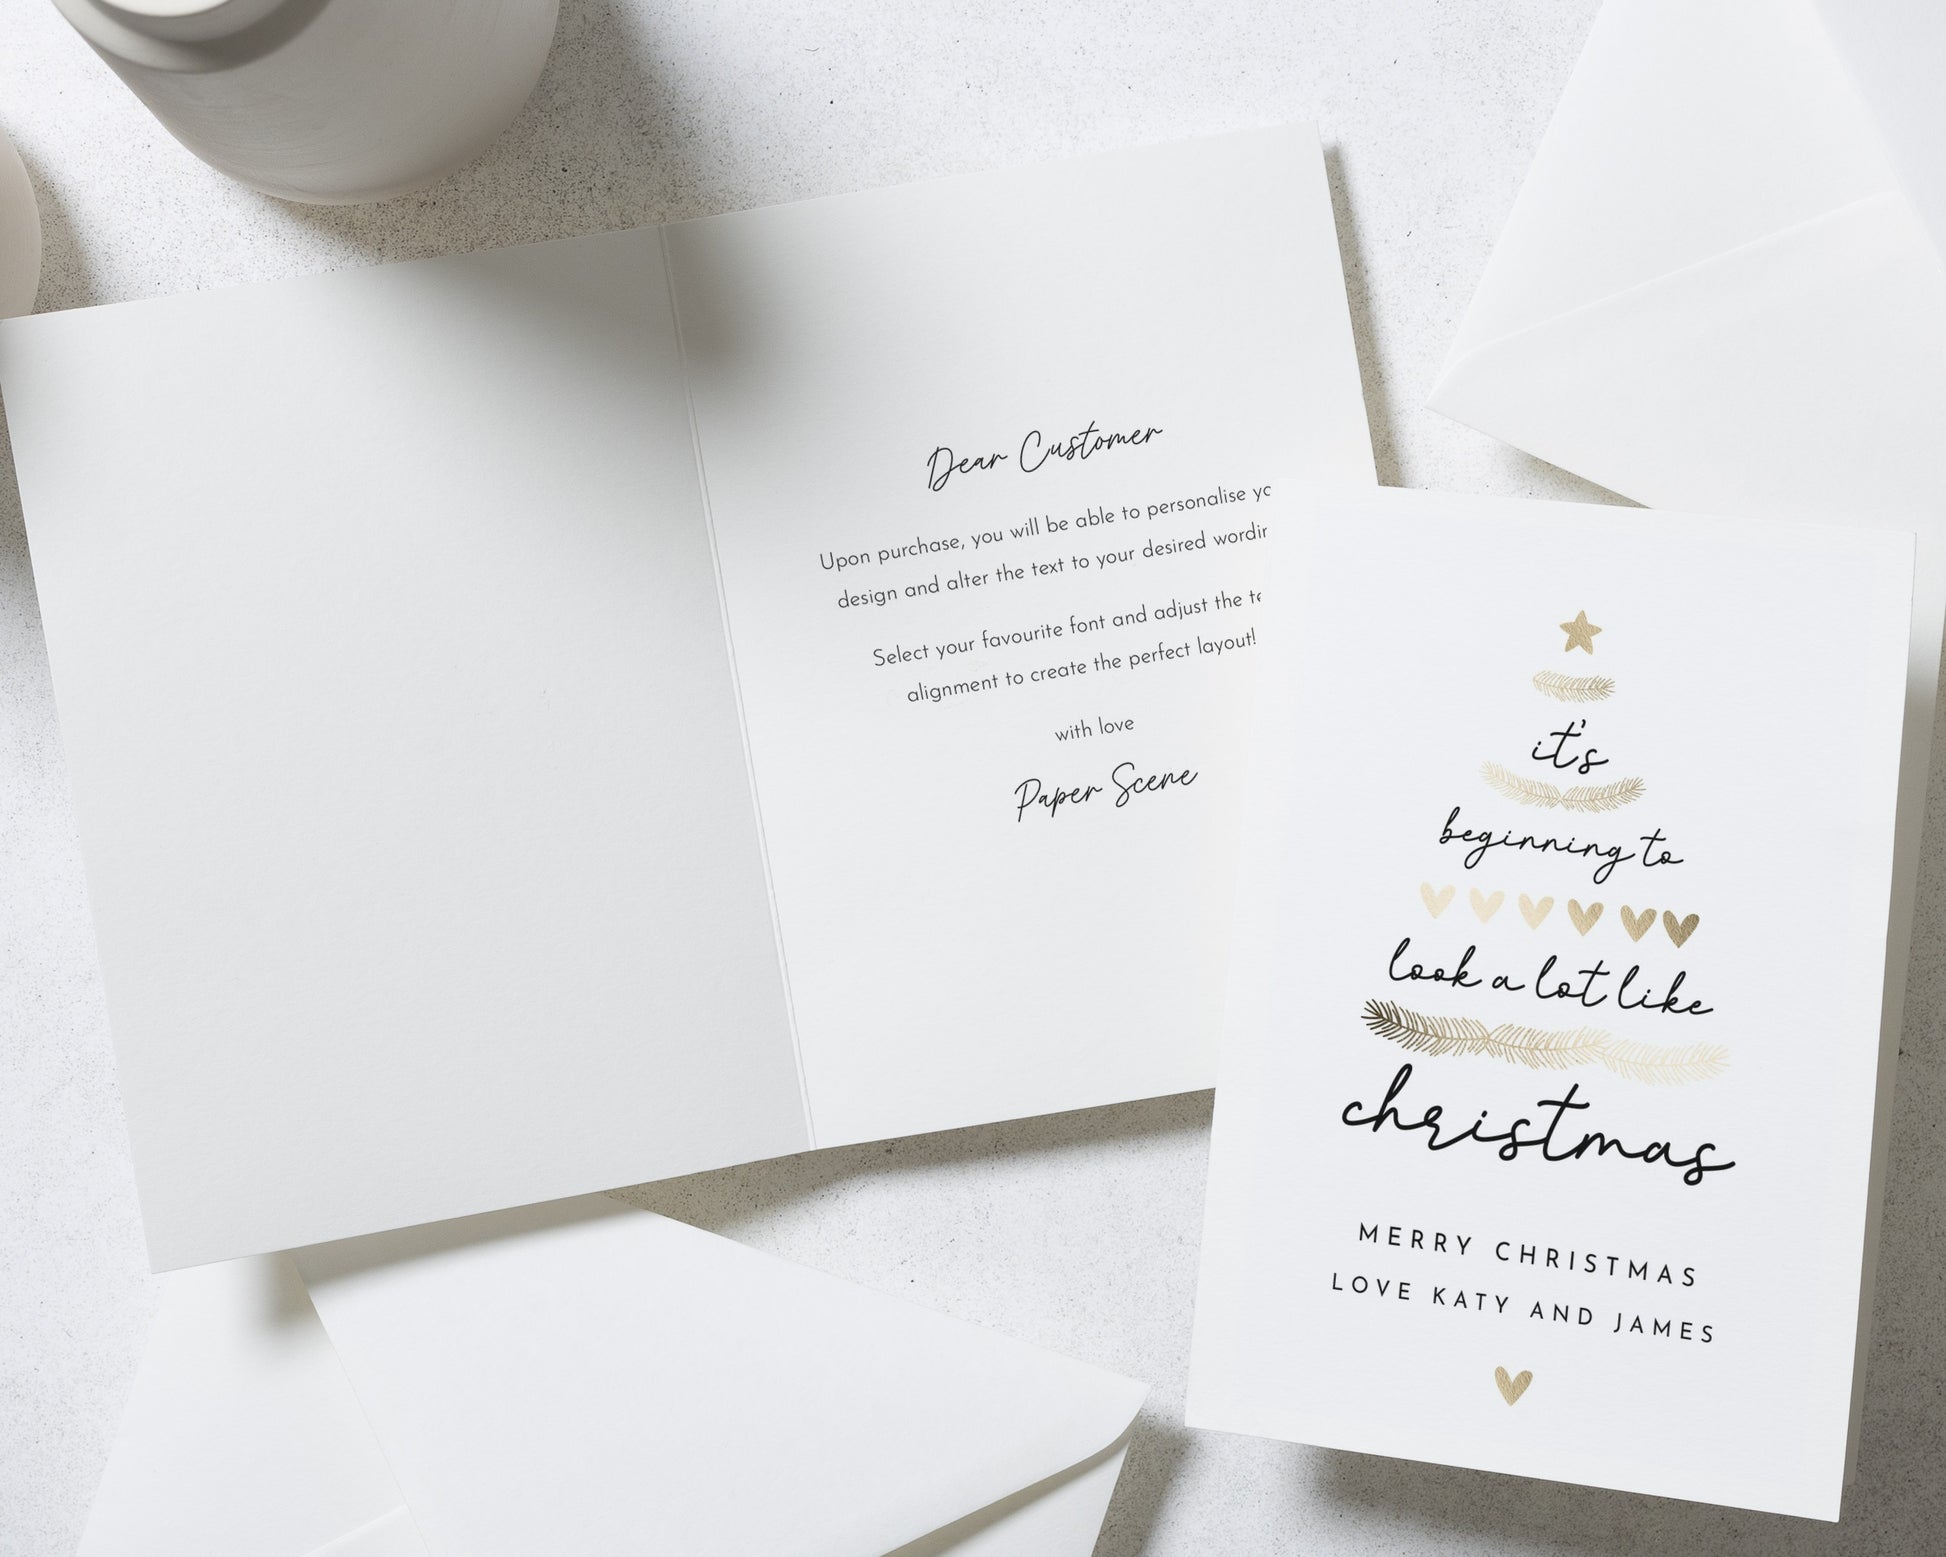 Dear Customer
Upon purchase, you will be able to personalise
design and alter the text to your desired
Select your favourite font and adjust the
alignment to create the perfect layout!
with love
Paper Scene
it's
beginning to
look a lot like
christmas
MERRY CHRISTMAS
LOVE KATY AND JAMES